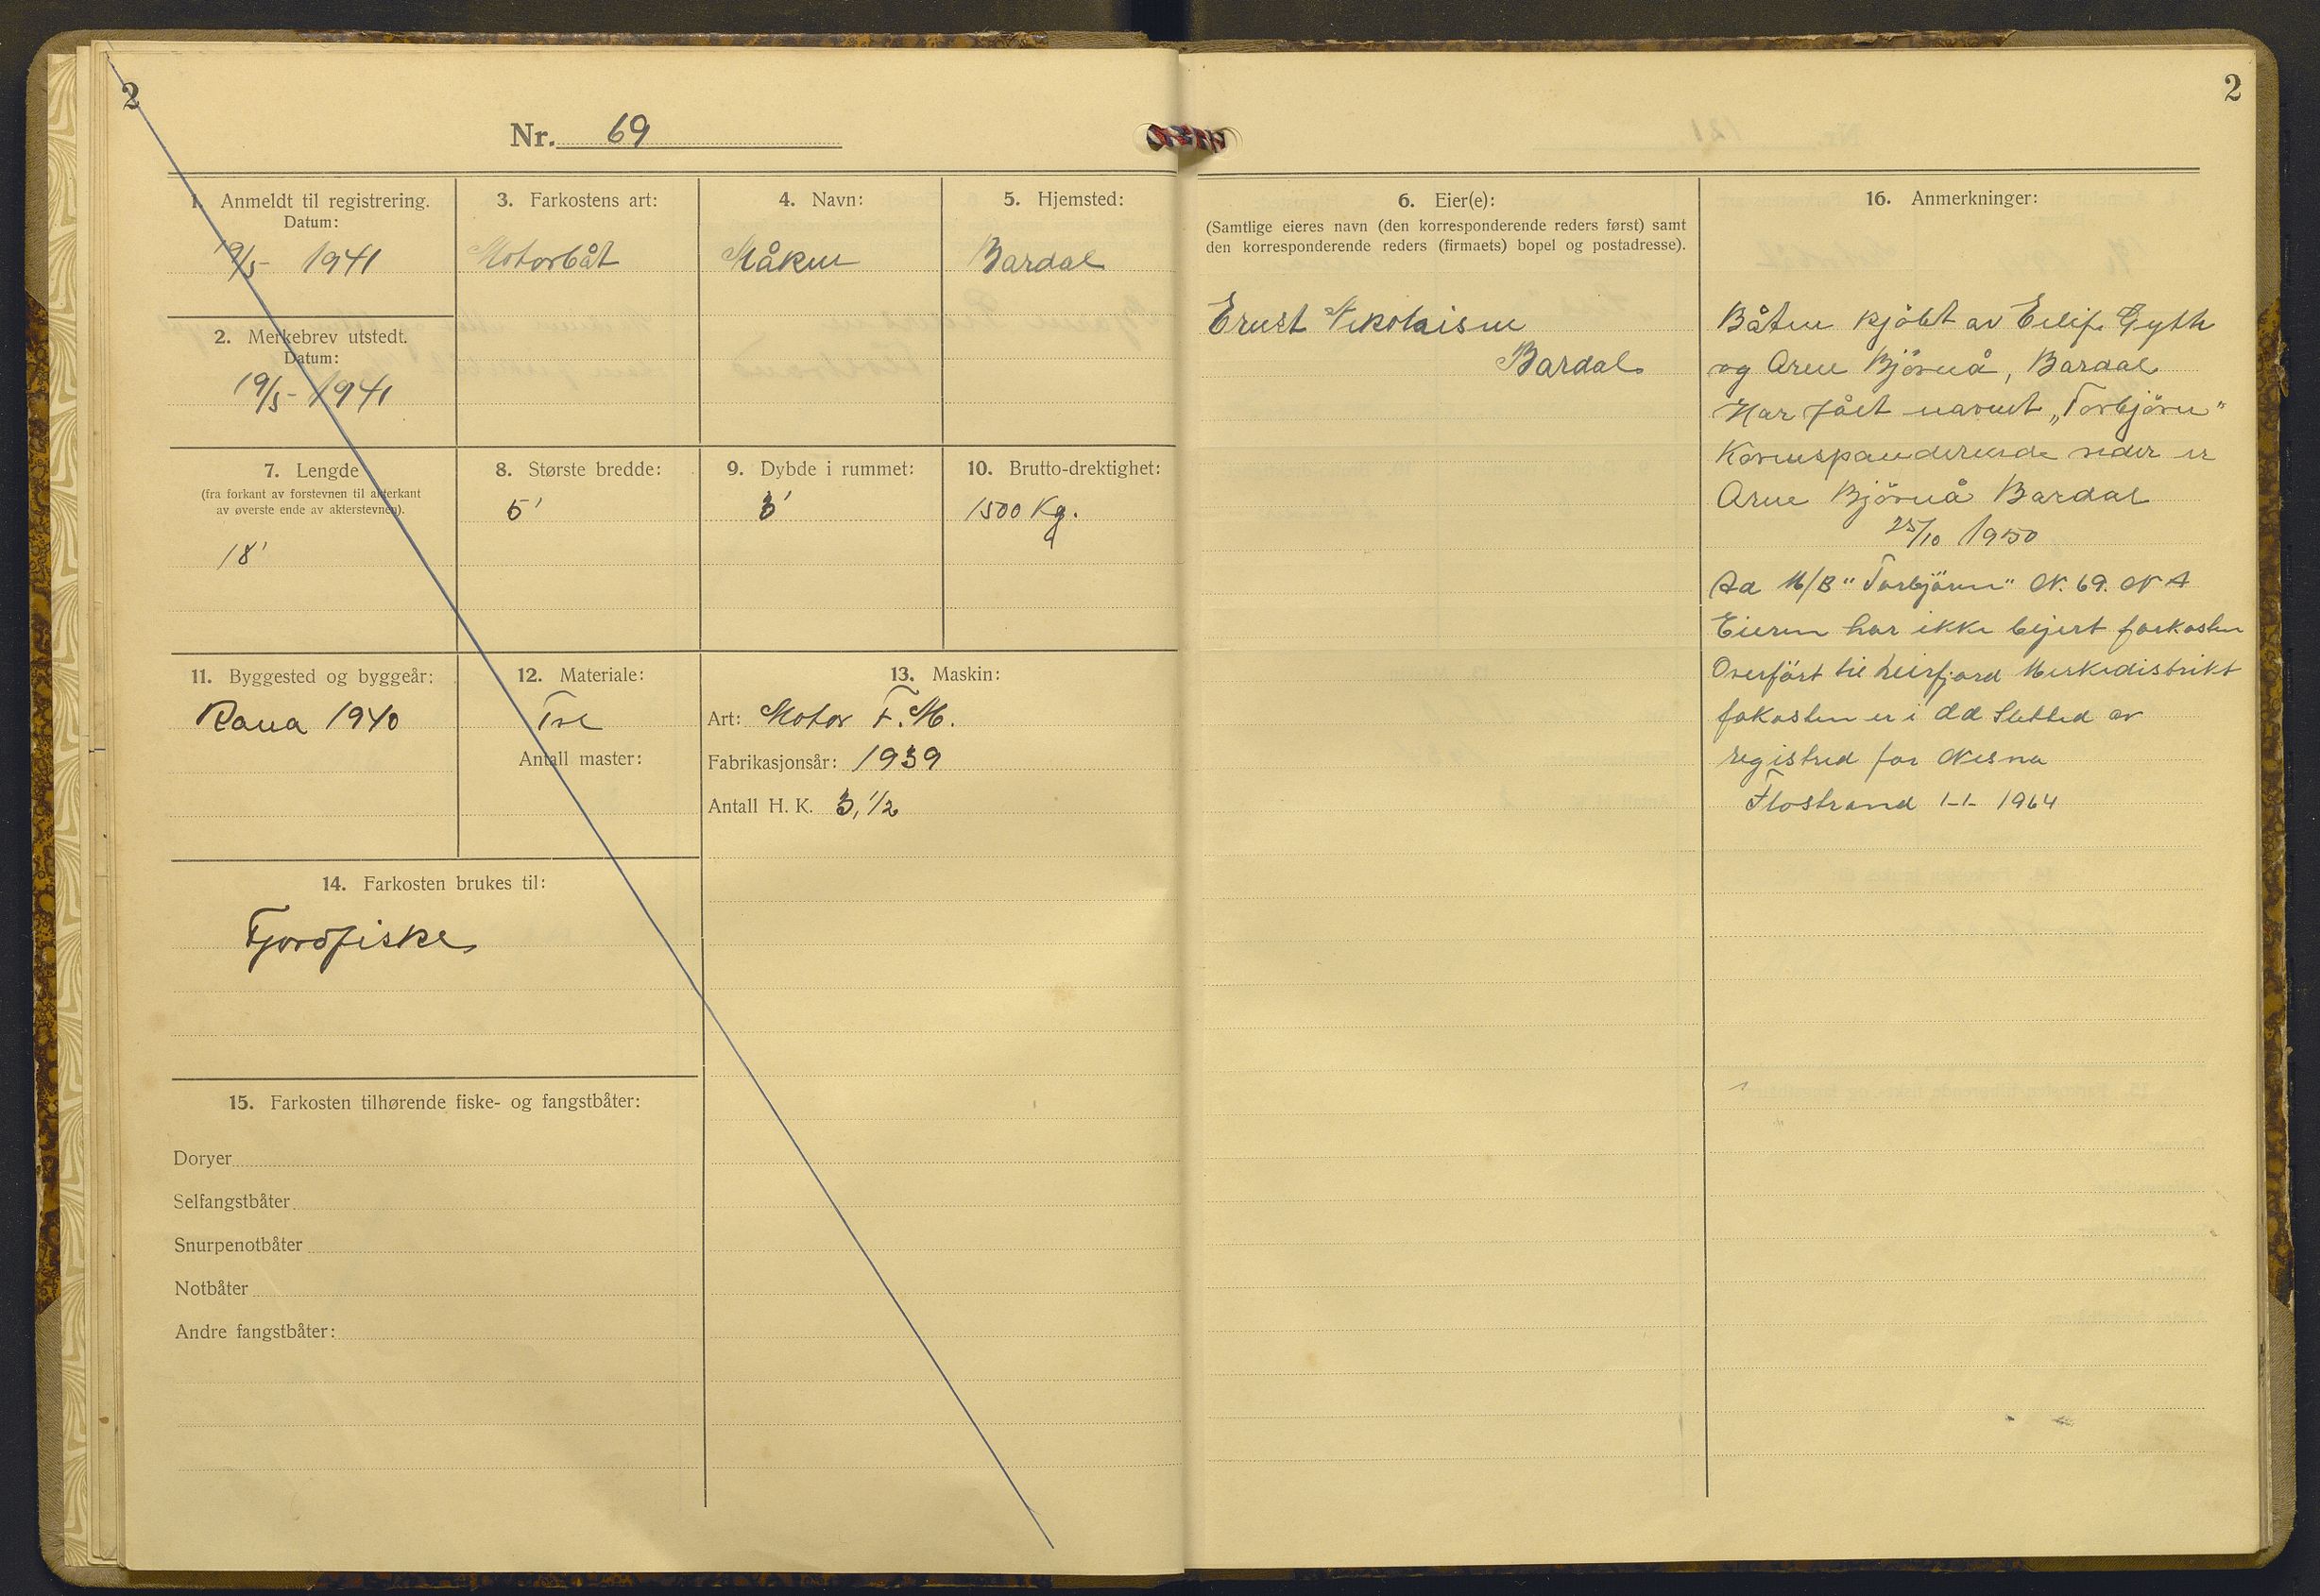 2
Nr. 69
1. Anmeldt til registrering.
Datum:
19/5- 1941
2. Merkebrev utstedt.
Datum:
19/5- 1941
3. Farkostens art:
Motorbåt
4. Navn:
Måken
5. Hjemsted:
Bardal
7. Lengde
(fra forkant av forstevnen til akterkant
av øverste ende av akterstevnen).
18'
8. Største bredde:
5'
9. Dybde i rummet:
3'
10. Brutto-drektighet:
1500 Kg.
11. Byggested og byggeår:
Rana 1940
12. Materiale:
Tre
Antall master:
13. Maskin:
Art: Motor F.M.
Fabrikasjonsår: 1939
Antall H. K. 3,1/2
14. Farkosten brukes til:
Fjordfiske
15. Farkosten tilhørende fiske- og fangstbåter:
Doryer
Selfangstbåter
Snurpenotbåter
Notbåter
Andre fangstbåter:
2
6. Eier(e):
(Samtlige eieres navn (den korresponderende reders først) samt
den korresponderende reders (firmaets) bopel og postadresse).
Ernst Nikolaisen
Bardal
16. Anmerkninger:
Båten kjöbt av Eilif Gyth
og Arne Björnå, Bardal
Har fået navnet „Torbjörn"
Korrespanderende reder er
Arne Björnå Bardal
25/10 1950
Ad M/B "Torbjörn" N. 69. N A
Eieren har ikke bejert farkosten
Overfört til Leirfjord Merkedistrikt
fakosten er i dd Sletted av
registred for Nesna
Flostrand 1-1- 1964